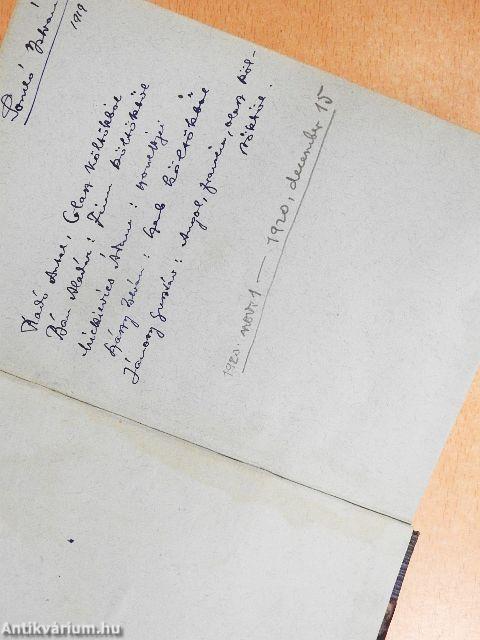 István
1919
Radó Antal: Olasz költőkből
Bán Aladár: Finn költőkből
Mickievics Ádám: szonettjei
István: költőkből
Jánosy Gusztáv: Angol, francia, olasz köl-
tőktől.
1920. nov. 1 — 1920, december 15
Antikvárium.hu